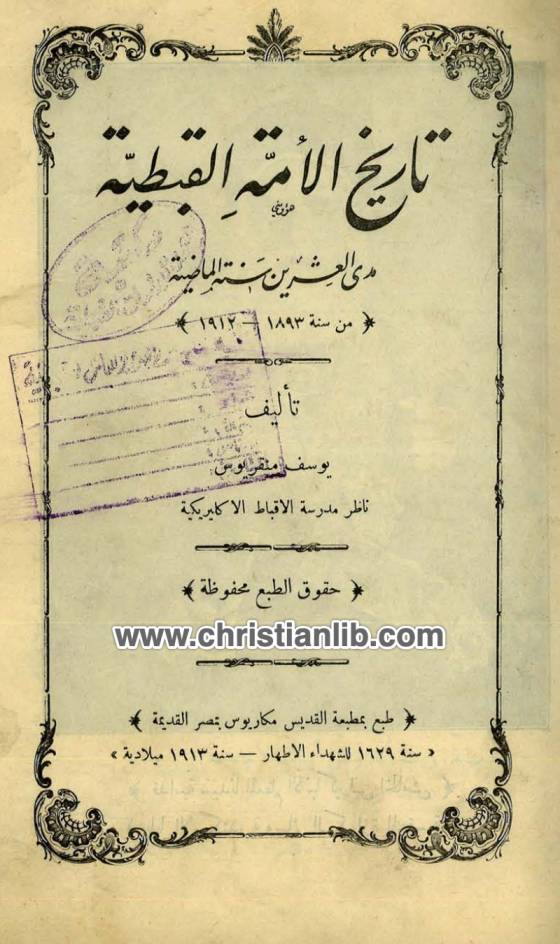 تاريخ الأمّة القبطيّة
مدى العشرين سنة الماضية
من سنة ١٨٩٣ — ١٩١٢
تأليف
يوسف منقريوس
ناظر مدرسة الاقباط الاكليريكية
حقوق الطبع محفوظة
www.christianlib.com
طبع بمطبعة القديس مكاريوس بمصر القديمة
« سنة ١٦٢٩ للشهداء الاطهار — سنة ١٩١٣ ميلادية »